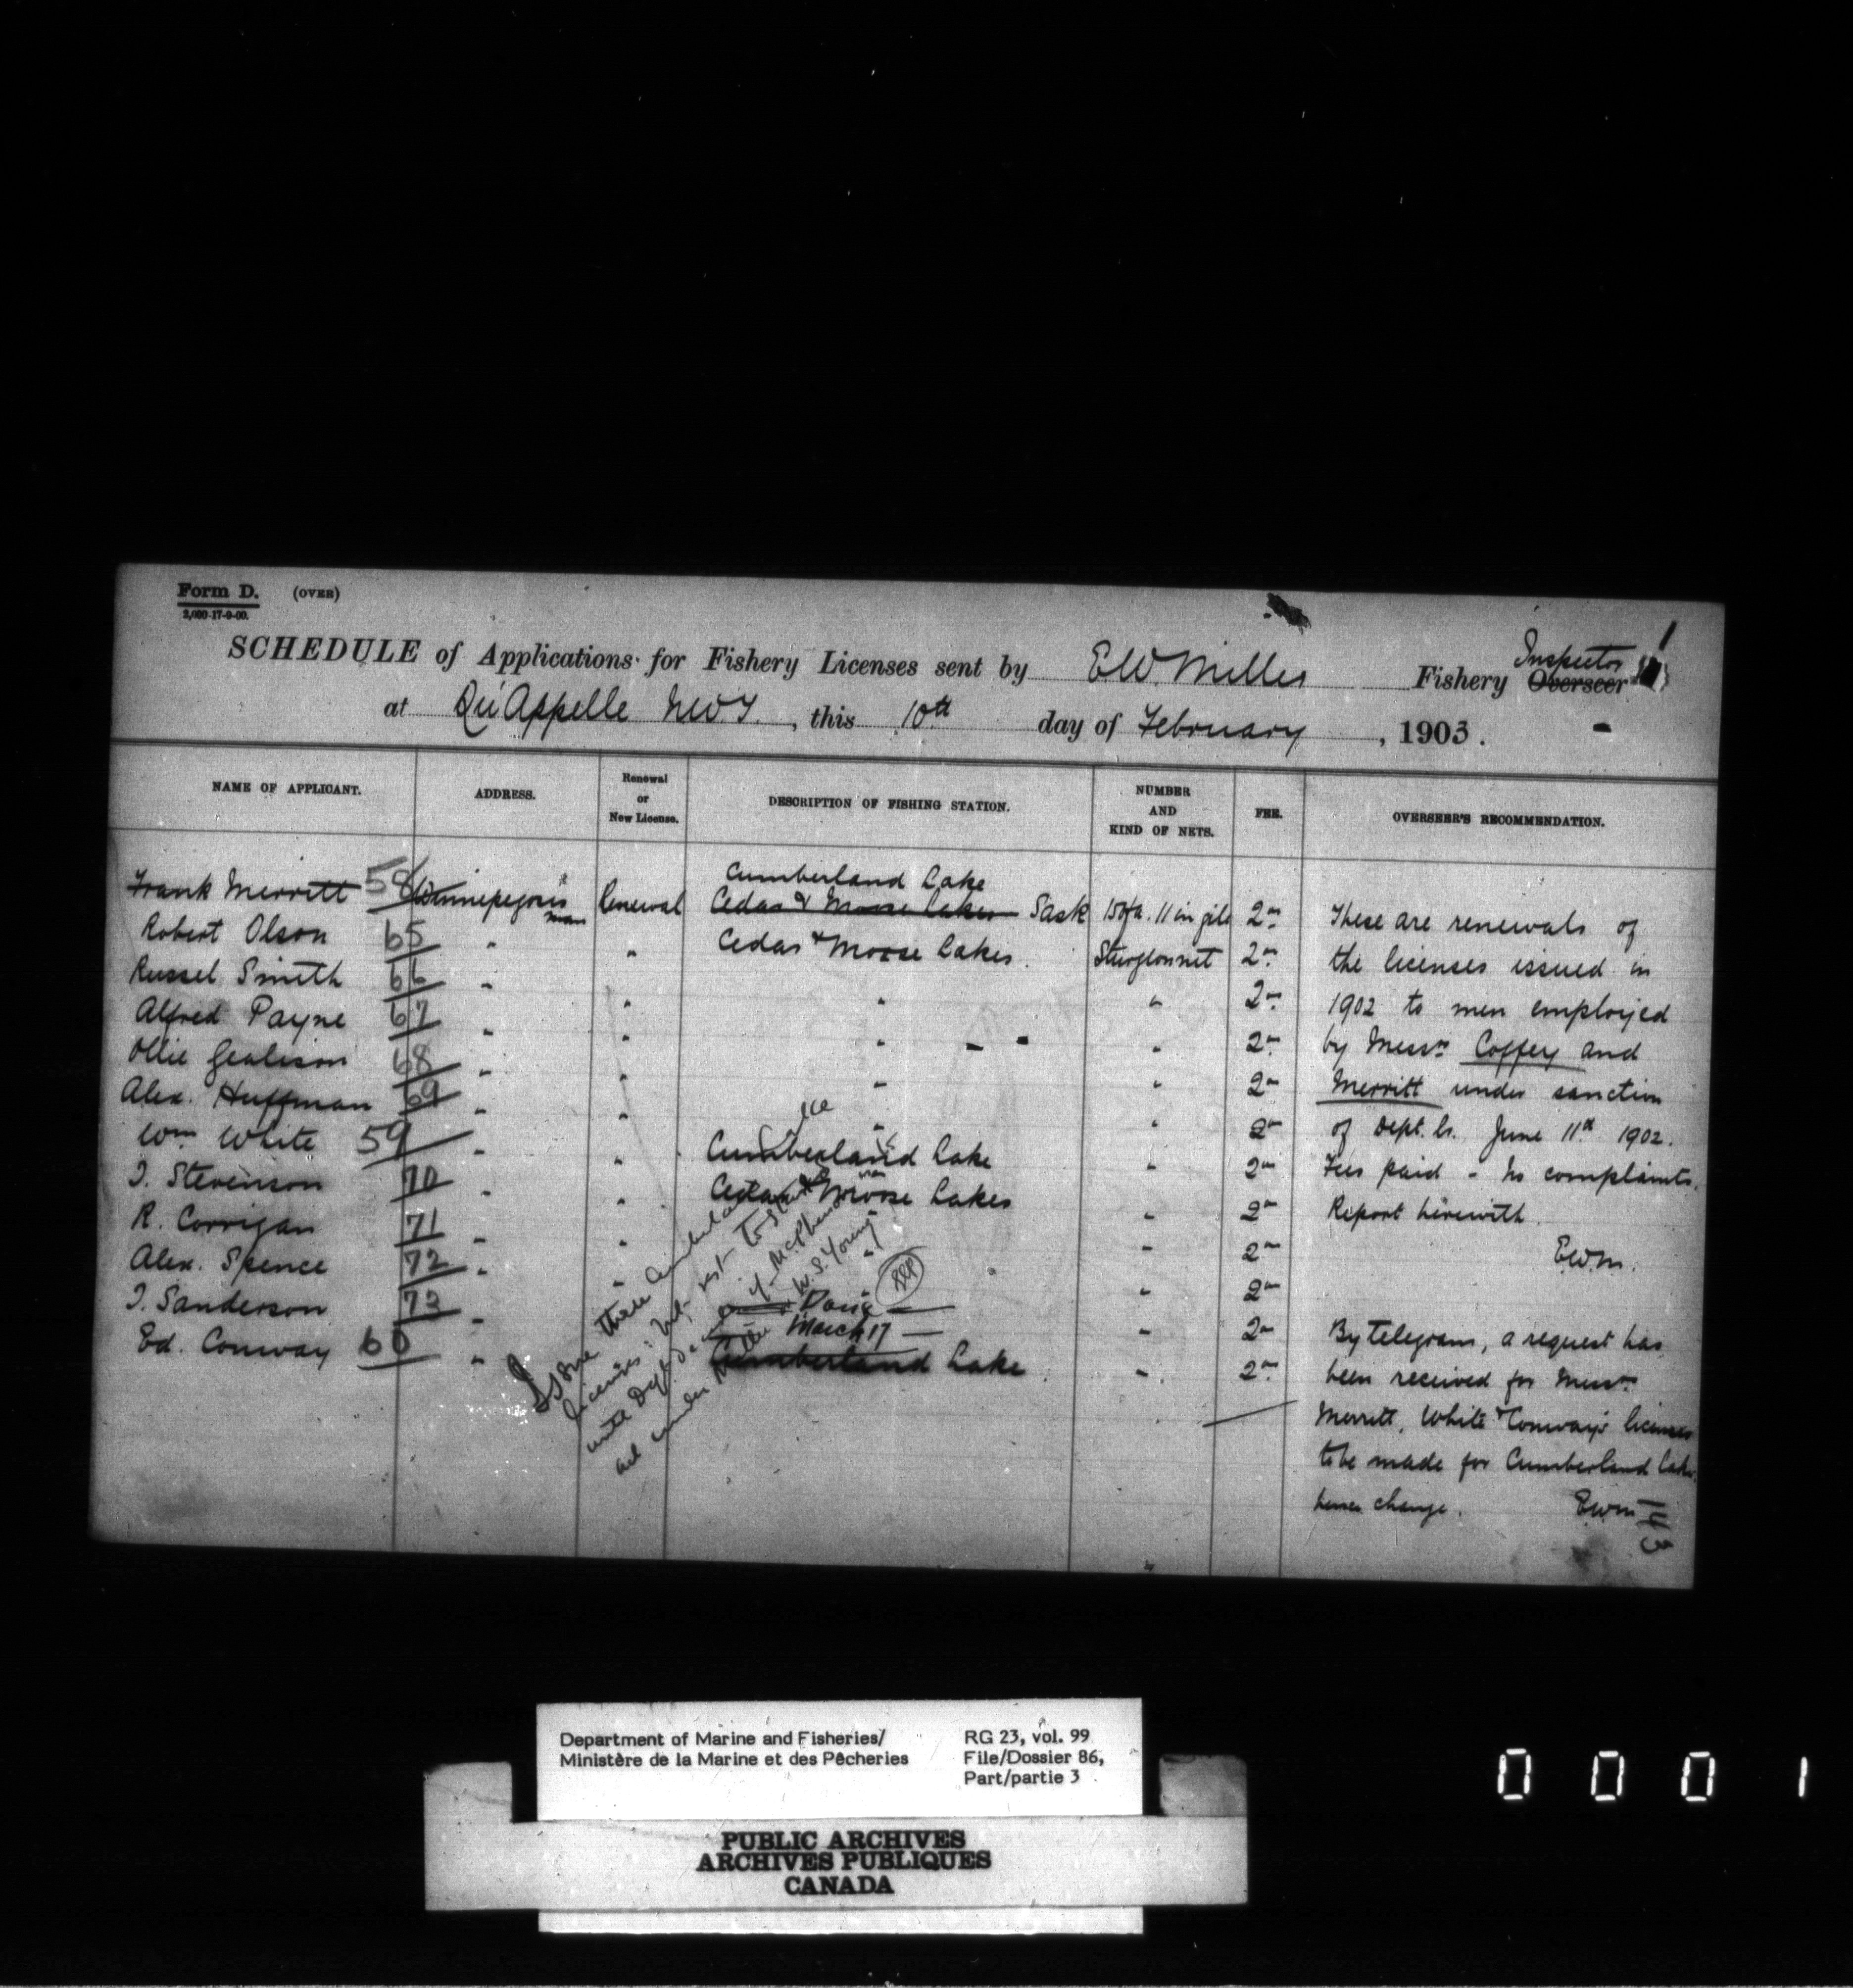 Form D. (OVER)
2,000-17-9-00.
1
SCHEDULE of Applications for Fishery Licenses sent by E.W. Miller Fishery Overseer Inspector
at Qu'Appelle N.W.T., this 10th day of February, 1903.
NAME OF APPLICANT. ADDRESS. Renewal or New License. DESCRIPTION OF FISHING STATION. NUMBER AND KIND OF NETS. FEE. OVERSEER'S RECOMMENDATION.
Cumberland Lake
Frank Merritt 58 Winnepegosis Man Renewal Cedar & Moose Lakes Sask 150 fa. 11 in gill 2 00 These are renewals of
Robert Olson 65 " " Cedar & Moose Lakes. Sturgeon net 2 00 the licenses issued in
Russel Smith 66 " " " " 2 00 1902 to men employed
Alfred Payne 67 " " " " 2 00 by Messrs Coffey and
Ollie 68 " " " " 2 00 Merritt under sanction
Alex. Huffman 69 " " " " 2 00 of Dept. lr. June 11th 1902.
Wm White 59 " " Cumberland Lake " 2 00 Fees paid - No complaints.
J. Stevenson 70 " " Cedar & Moose Lakes " 2 00 Report herewith.
R. Corrigan 71 " " " " 2 00 EWM.
Alex. Spence 72 " " " 2 00
J. Sanderson 73 " " 2 00 By telegram, a request has
Ed. Conway 60 " Cumberland Lake. " 2 00 been received for Messrs
Merritt, White & Conway's licenses
to be made for Cumberland Lake,
hence change. EWM
Issue these Cumberland Lake
licenses
W.S. Young
Done
March 17
Department of Marine and Fisheries/
Ministère de la Marine et des Pêcheries
RG 23, vol. 99
File/Dossier 86,
Part/partie 3
PUBLIC ARCHIVES
ARCHIVES PUBLIQUES
CANADA
0001